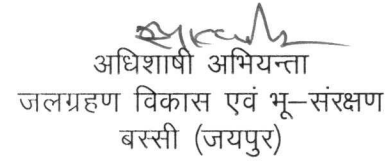 अधिशाषी अभियन्ता
जलग्रहण विकास एवं भू–संरक्षण
बस्सी (जयपुर)